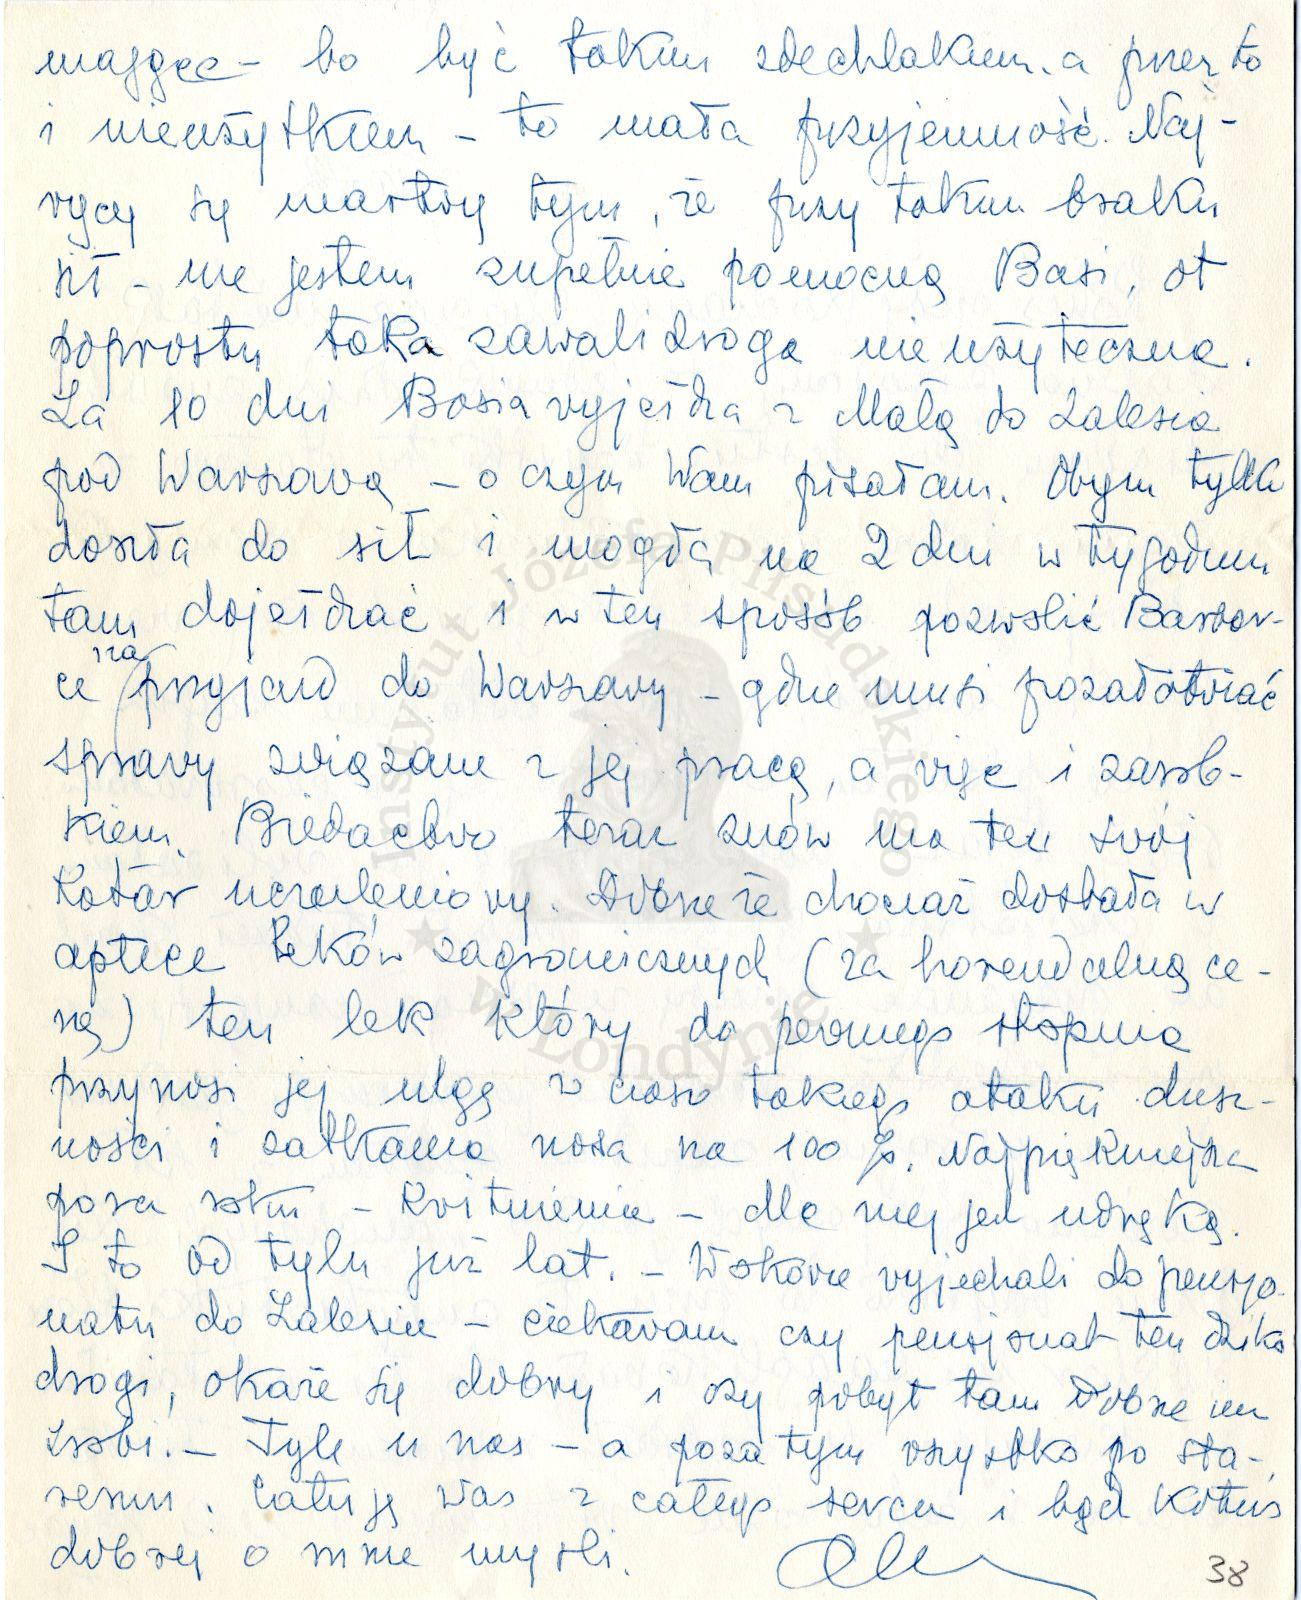 mające – bo być takim zdechlakiem a przez to
i nieużytkiem – to mała przyjemność. Naj-
więcej się martwię tym, że przy takim braku
sił – nie jestem zupełnie pomocną Basi, ot
poprostu taka zawalidroga nieużyteczna.
Za 10 dni Basia wyjeżdża z Małą do Zalesia
pod Warszawą – o czym Wam pisałam. Obym tylko
doszła do sił i mogła na 2 dni w tygodniu
tam dojeżdżać i w ten sposób pozwolić Barbar-
ce na przyjazd do Warszawy – gdzie musi pozałatwiać
sprawy związane z jej pracą, a więc i zarob-
kiem. Biedactwo teraz znów ma ten swój
Katar uczuleniowy. Dobrze że chociaż dostała w
aptece leków zagranicznych (za horendalną ce-
nę) ten lek który do pewnego stopnia
przynosi jej ulgę w czasie takiego ataku dusz-
ności i zatkania nosa na 100 %. Najpiękniejsza
pora roku – Kwitnienie – dla niej jest udręką.
I to od tylu już lat. – W skórze wyjechali do pensjo-
natu do Zalesia – ciekawam czy pensjonat ten dziko
drogi, okaże się dobry i czy pobyt tam dobrze im
zrobi. – Tyle u nas – a poza tym wszystko po sta-
remu. Całuję Was z całego serca i bądź Kotuś
dobrej o mnie myśli.
38
Instytut Józefa Piłsudskiego
w Londynie